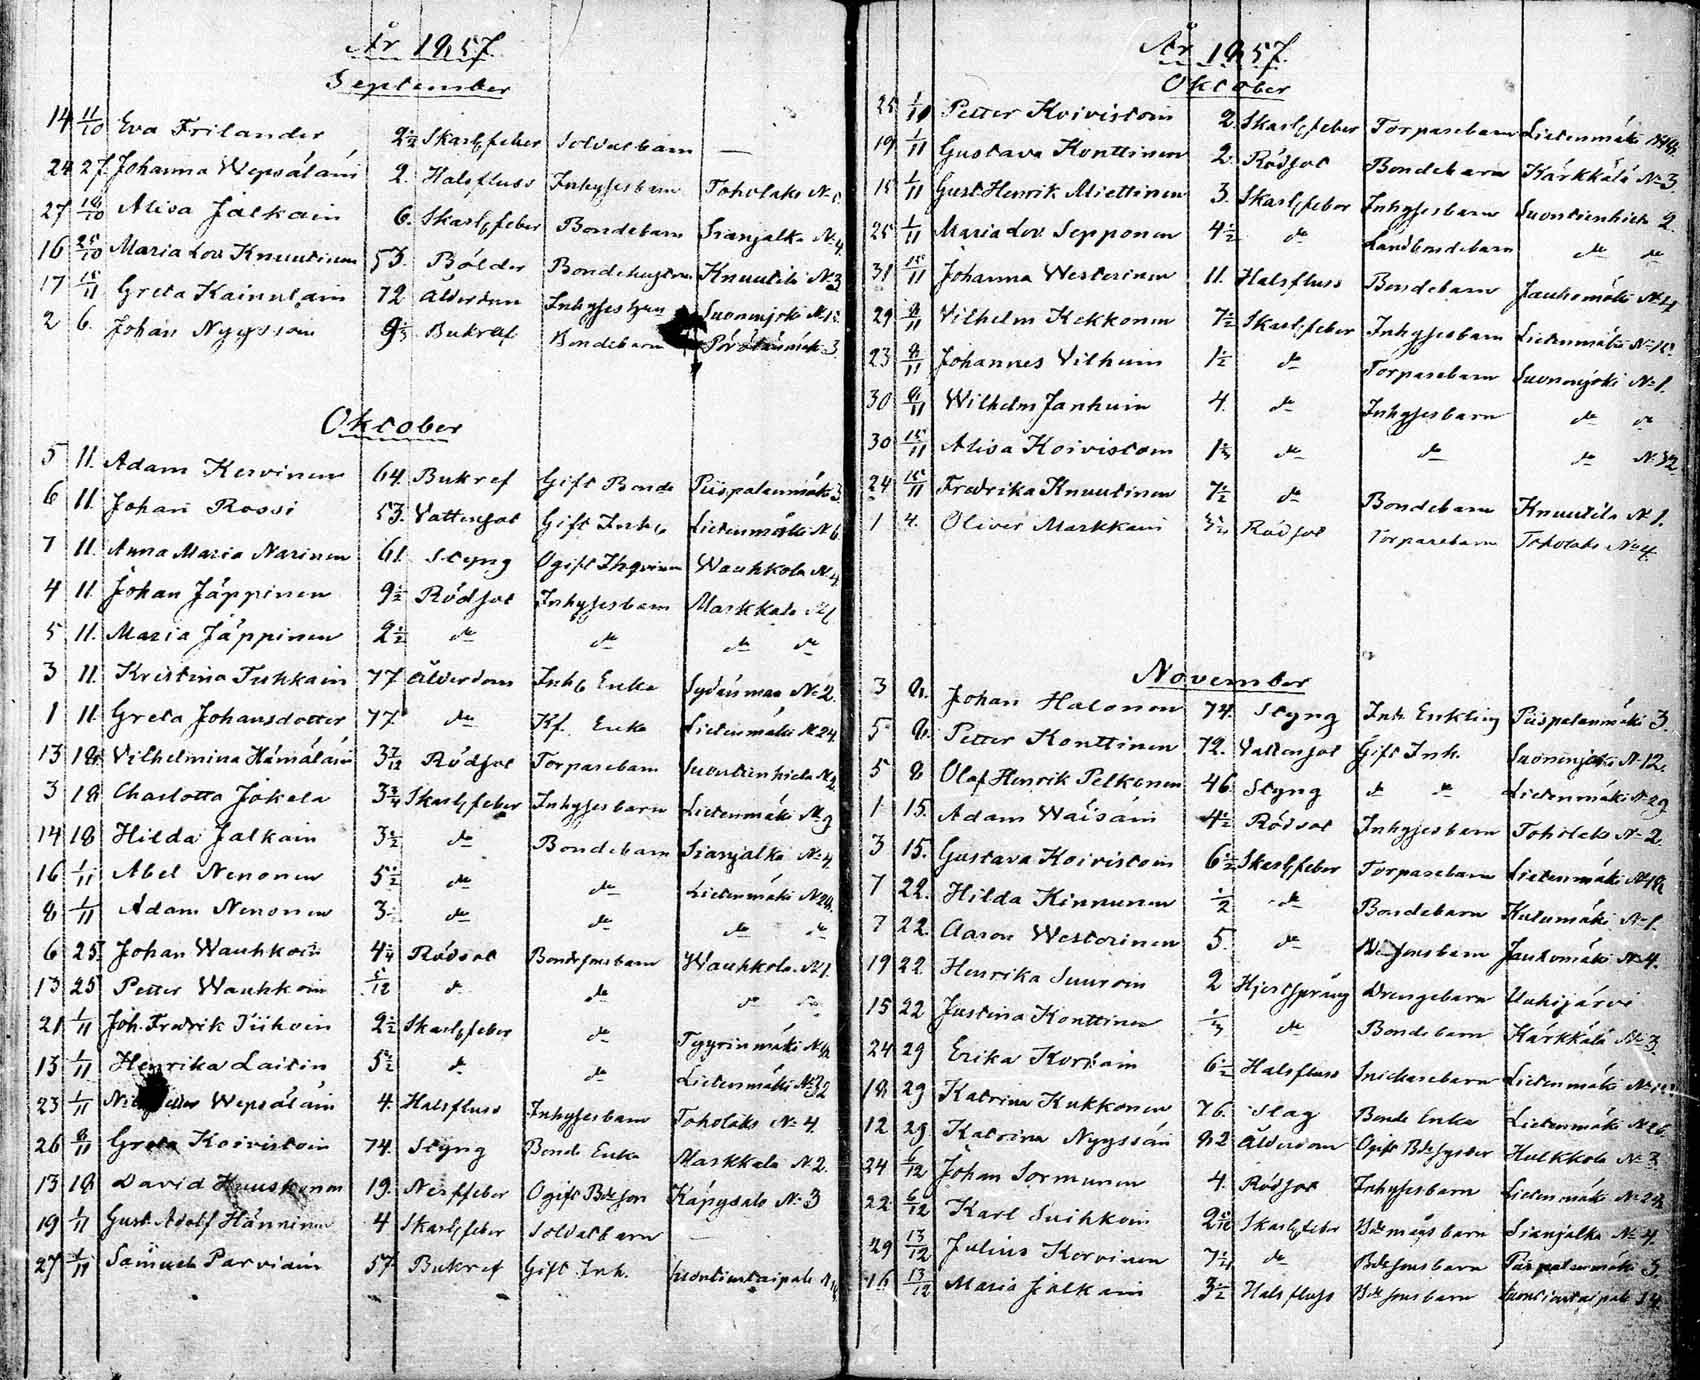 År 1857.
September
14 11/10 Eva Frilander 2 1/2 Skarl.feber Soldatbarn —
24 27. Johanna Wepsäläin 2. Halsfluss Inhysesbarn Toholaks N.
27 18/10 Alisa Jalkain 6. Skarl.feber Bondebarn Sianjalka N. 4.
16 25/10 Maria Lov. Knuutinen 53. Bölder Bondehustru Knuutila N. 3
17 15/11 Greta Kainulain 72 Ålderdom Inhyses Suonenjoki N.
2 6. Johan Nyyssöin 9 Bukref Bondebarn 3.
Oktober
5 11. Adam Kervinen 64. Bukref Gift Bonde Piispalanmäki 3.
6 11. Johan Rossi 53. Vattensot Gift Inh. Lietenmäki N. 6
7 11. Anna Maria Narinen 61. Styng Ogift Wauhkola N. 4.
4 11. Johan Jäppinen 9 1/2 Rödsot Inhysesbarn Markkala N. 1
5 11. Maria Jäppinen 2 1/2 do do do do
3 11. Kristina Tuhkain 77 Ålderdom Inh. Enka Sydänmaa N. 2.
1 11. Greta Johansdotter 77. do Kf. Enka Lietenmäki N. 24.
13 18. Vilhelmina Hämäläin 3 7/12 Rödsot Torparebarn Suontienhieta N.
3 18 Charlotta Jokela 3 3/4 Skarl.feber Inhysesbarn Lietenmäki N. 9
14 18 Hilda Jalkain 3 1/2 do Bondebarn Sianjalka N. 4.
16 1/11 Abel Nenonen 5 1/2 do do Lietenmäki N. 28.
8 1/11 Adam Nenonen 3 do do do do
6 25. Johan Wauhkoin 4 Rödsot Bondesonsbarn Wauhkola N. 1.
13 25 Petter Wauhkoin /12 do do do do
21 1/11 Joh. Fredrik Tiihoin 2 1/2 Skarl.feber do Tyyrinmäki N.
13 1/11 Henrika Laitin 5 1/2 do do Lietenmäki N. 32
23 1/11 Wepsäläin 4. Halsfluss Inhysesbarn Toholaks N. 4.
26 8/11 Greta Koivistoin 74. Styng Bonde Enka Markkala N. 2.
13 18 David Huuskonen 19. Nerffeber Ogift Bdeson Käpysalo N. 3
19 1/11 Gust. Adolf Hänninen 4 Skarl.feber Soldatbarn —
27 1/11 Samuel Parviain 57. Bukref Gift Inh. Suontientaipale N.
År 1857.
Oktober
25 1/11 Petter Koivistoin 2. Skarl.feber Torparebarn Lietenmäki N. 18.
19 1/11 Gustava Konttinen 2. Rödsot Bondebarn Kärkkälä N. 3.
15 1/11 Gust. Henrik Miettinen 3. Skarl.feber Inhysesbarn Suontienhieta 2.
25 1/11 Maria Lov. Sepponen 4 1/2 do Landbondebarn do do
31 15/11 Johanna Westerinen 11. Halsfluss Bondebarn Jauhomäki N. 4
29 8/11 Vilhelm Kekkonen 7 1/2 Skarl.feber Inhysesbarn Lietenmäki N.
23 8/11 Johannes Vilhuin 1 1/2 do Torparebarn Suonenjoki N. 1.
30 8/11 Wilhelm Janhuin 4. do Inhysesbarn do do
30 15/11 Alisa Koivistoin 1 do do do N. 32
24 15/11 Fredrika Knuutinen 7 1/2 do Bondebarn Knuutila N. 1.
1 4. Oliver Markkain Rödsot Torparebarn Toholaks N. 4.
November
3 8. Johan Halonen 74. Styng Inh. Enkling Piispalanmäki 3.
5 8. Petter Konttinen 72. Vattensot Gift Inh. Suonenjoki N. 12.
5 8 Olof Henrik Pelkonen 46 Styng do do Lietenmäki N. 29
1 15. Adam Wäisäin 4 1/2 Rödsot Inhysesbarn Toholaks N. 2.
3 15. Gustava Koivistoin 6 1/2 Skarl.feber Torparebarn Lietenmäki N. 18
7 22. Hilda Kinnunen 1/2 do Bondebarn Kutumäki N. 1.
7 22. Aaron Westerinen 5. do Bdesonsbarn Jauhomäki N. 4.
19 22 Henrika Suuroin 2 Hjertsprång Drengebarn Uuhijärvi
15 22 Justina Konttinen do Bondebarn Kärkkälä N. 3.
24 29 Erika Korhain 6 1/2 Halsfluss Snickarebarn Lietenmäki N.
18 29 Katrina Kukkonen 76. Slag Bonde Enka Lietenmäki N. 26.
12 29 Katrina Nyyssöin 82 Ålderdom Ogift Bdesyster Hulkkola N. 3
24 6/12 Johan Sormunen 4. Rödsot Inhysesbarn Lietenmäki N. 28
22 6/12 Karl Suihkoin 2 Skarl.feber Bdemågsbarn Sianjalka N. 4.
29 13/12 Julius Korvinen 7 do Bdesonsbarn Piispalanmäki 3.
16 13/12 Maria Jalkain 3 1/2 Halsfluss Bdesonsbarn Suontientaipale 14.